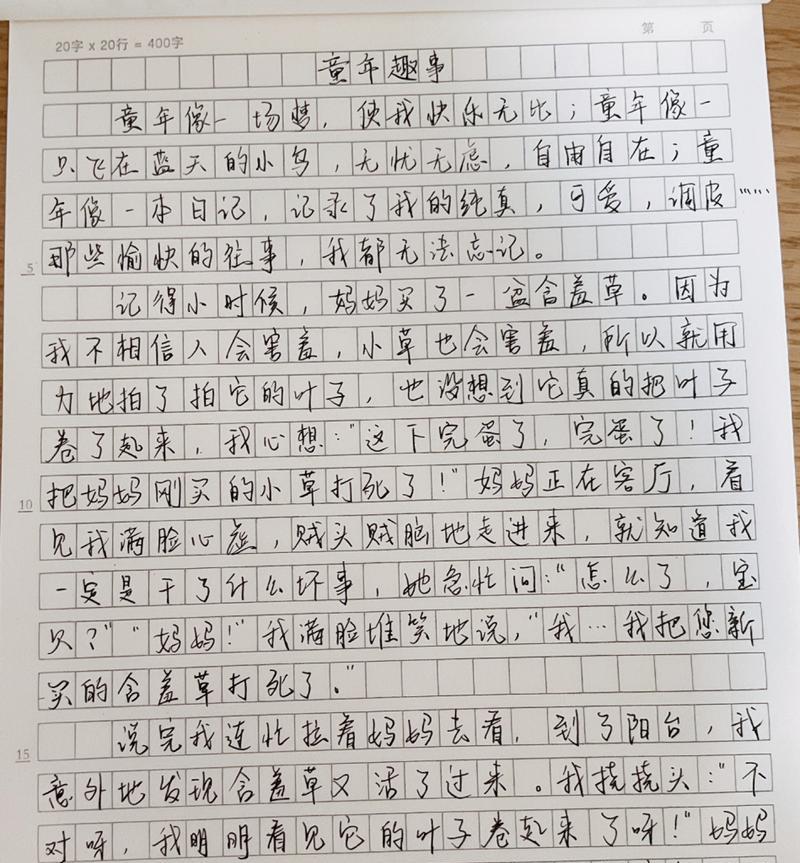 第 页
20字 x 20行 = 400字
童年趣事
童年像一场梦，使我快乐无比；童年像一
只飞在蓝天的小鸟，无忧无虑，自由自在；童
年像一本日记，记录了我的纯真，可爱，调皮……
5 那些愉快的往事，我都无法忘记。
记得小时候，妈妈买了一盆含羞草。因为
我不相信人会害羞，小草也会害羞，所以就用
力地拍了拍它的叶子，也没想到它真的把叶子
卷了起来，我心想："这下完蛋了，完蛋了！我
10 把妈妈刚买的小草打死了！"妈妈正在客厅，看
见我满脸心虚，贼头贼脑地走进来，就知道我
一定是干了什么坏事，她急忙问："怎么了，宝
贝？""妈妈！"我满脸堆笑地说，"我…我把您新
买的含羞草打死了。"
15 说完我连忙拉着妈妈去看，到了阳台，我
意外地发现含羞草又活了过来。我挠挠头："不
对呀，我明明看见它的叶子卷起来了呀！"妈妈